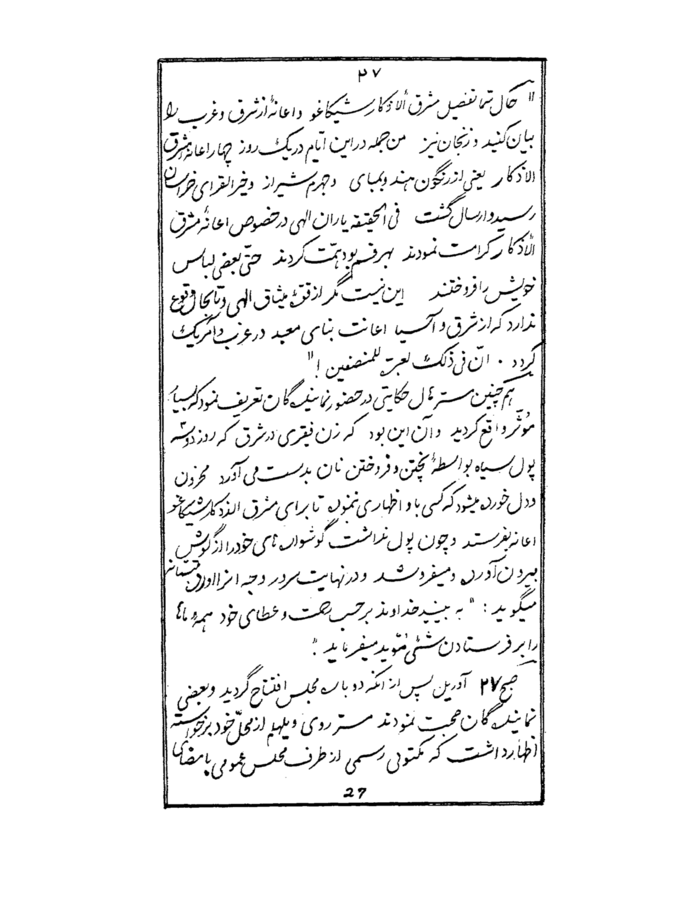 ۲۷
" حال شما تفصیل مشرق الاذکار شیکاغو و اعانهٔ از شرق و غرب را
بیان کنید و زنجان نیز من جمله در این ایام در یک روز چهار اعانهٔ مشرق
الاذکار یعنی از رنگون هند و بمبای و جهرم شیراز و خیر القرای خراسان
رسید و ارسال گشت فی الحقیقه یاران الهی در خصوص اعانهٔ مشرق
الاذکار کرامت نمودند بهر قسم بود همت کردند حتی بعضی لباس
خویش را فروختند این نیست مگر از قوت میثاق الهی و تا بحال وقوع
ندارد که از شرق و آسیا اعانت بنای معبد در غرب و امریک
گردد ۰ ان فی ذلک لعبرة للمنصفین ! "
هم چنین مستر مال حکایتی در حضور نمایندگان تعریف نمود که بسیار
مؤثر واقع گردید و آن این بود که زن فقیری در شرق که روز دو سه
پول سیاه بواسطهٔ پختن و فروختن نان بدست می آورد محزون
و دل خون میشود که کسی باو اظهاری ننموده تا برای مشرق الاذکار شیکاغو
اعانه بفرستد و چون پول نداشت گوشواره های خود را از گوش
بیرون آورده و میفروشد و در نهایت سرور وجه انرا آورده
میگوید : " به بینید خداوند بر حسب رحمت و عطای خود همهٔ ماها
را بر فرستادن شئی مؤید میفرماید "
صبح ۲۷ آوریل پس از آنکه دوباره مجلس افتتاح گردید و بعضی
نمایندگان صحبت نمودند مستر روی ویلهلم از محل خود برخواسته
اظهار داشت که مکتوبی رسمی از طرف مجلس عمومی بامضای
27